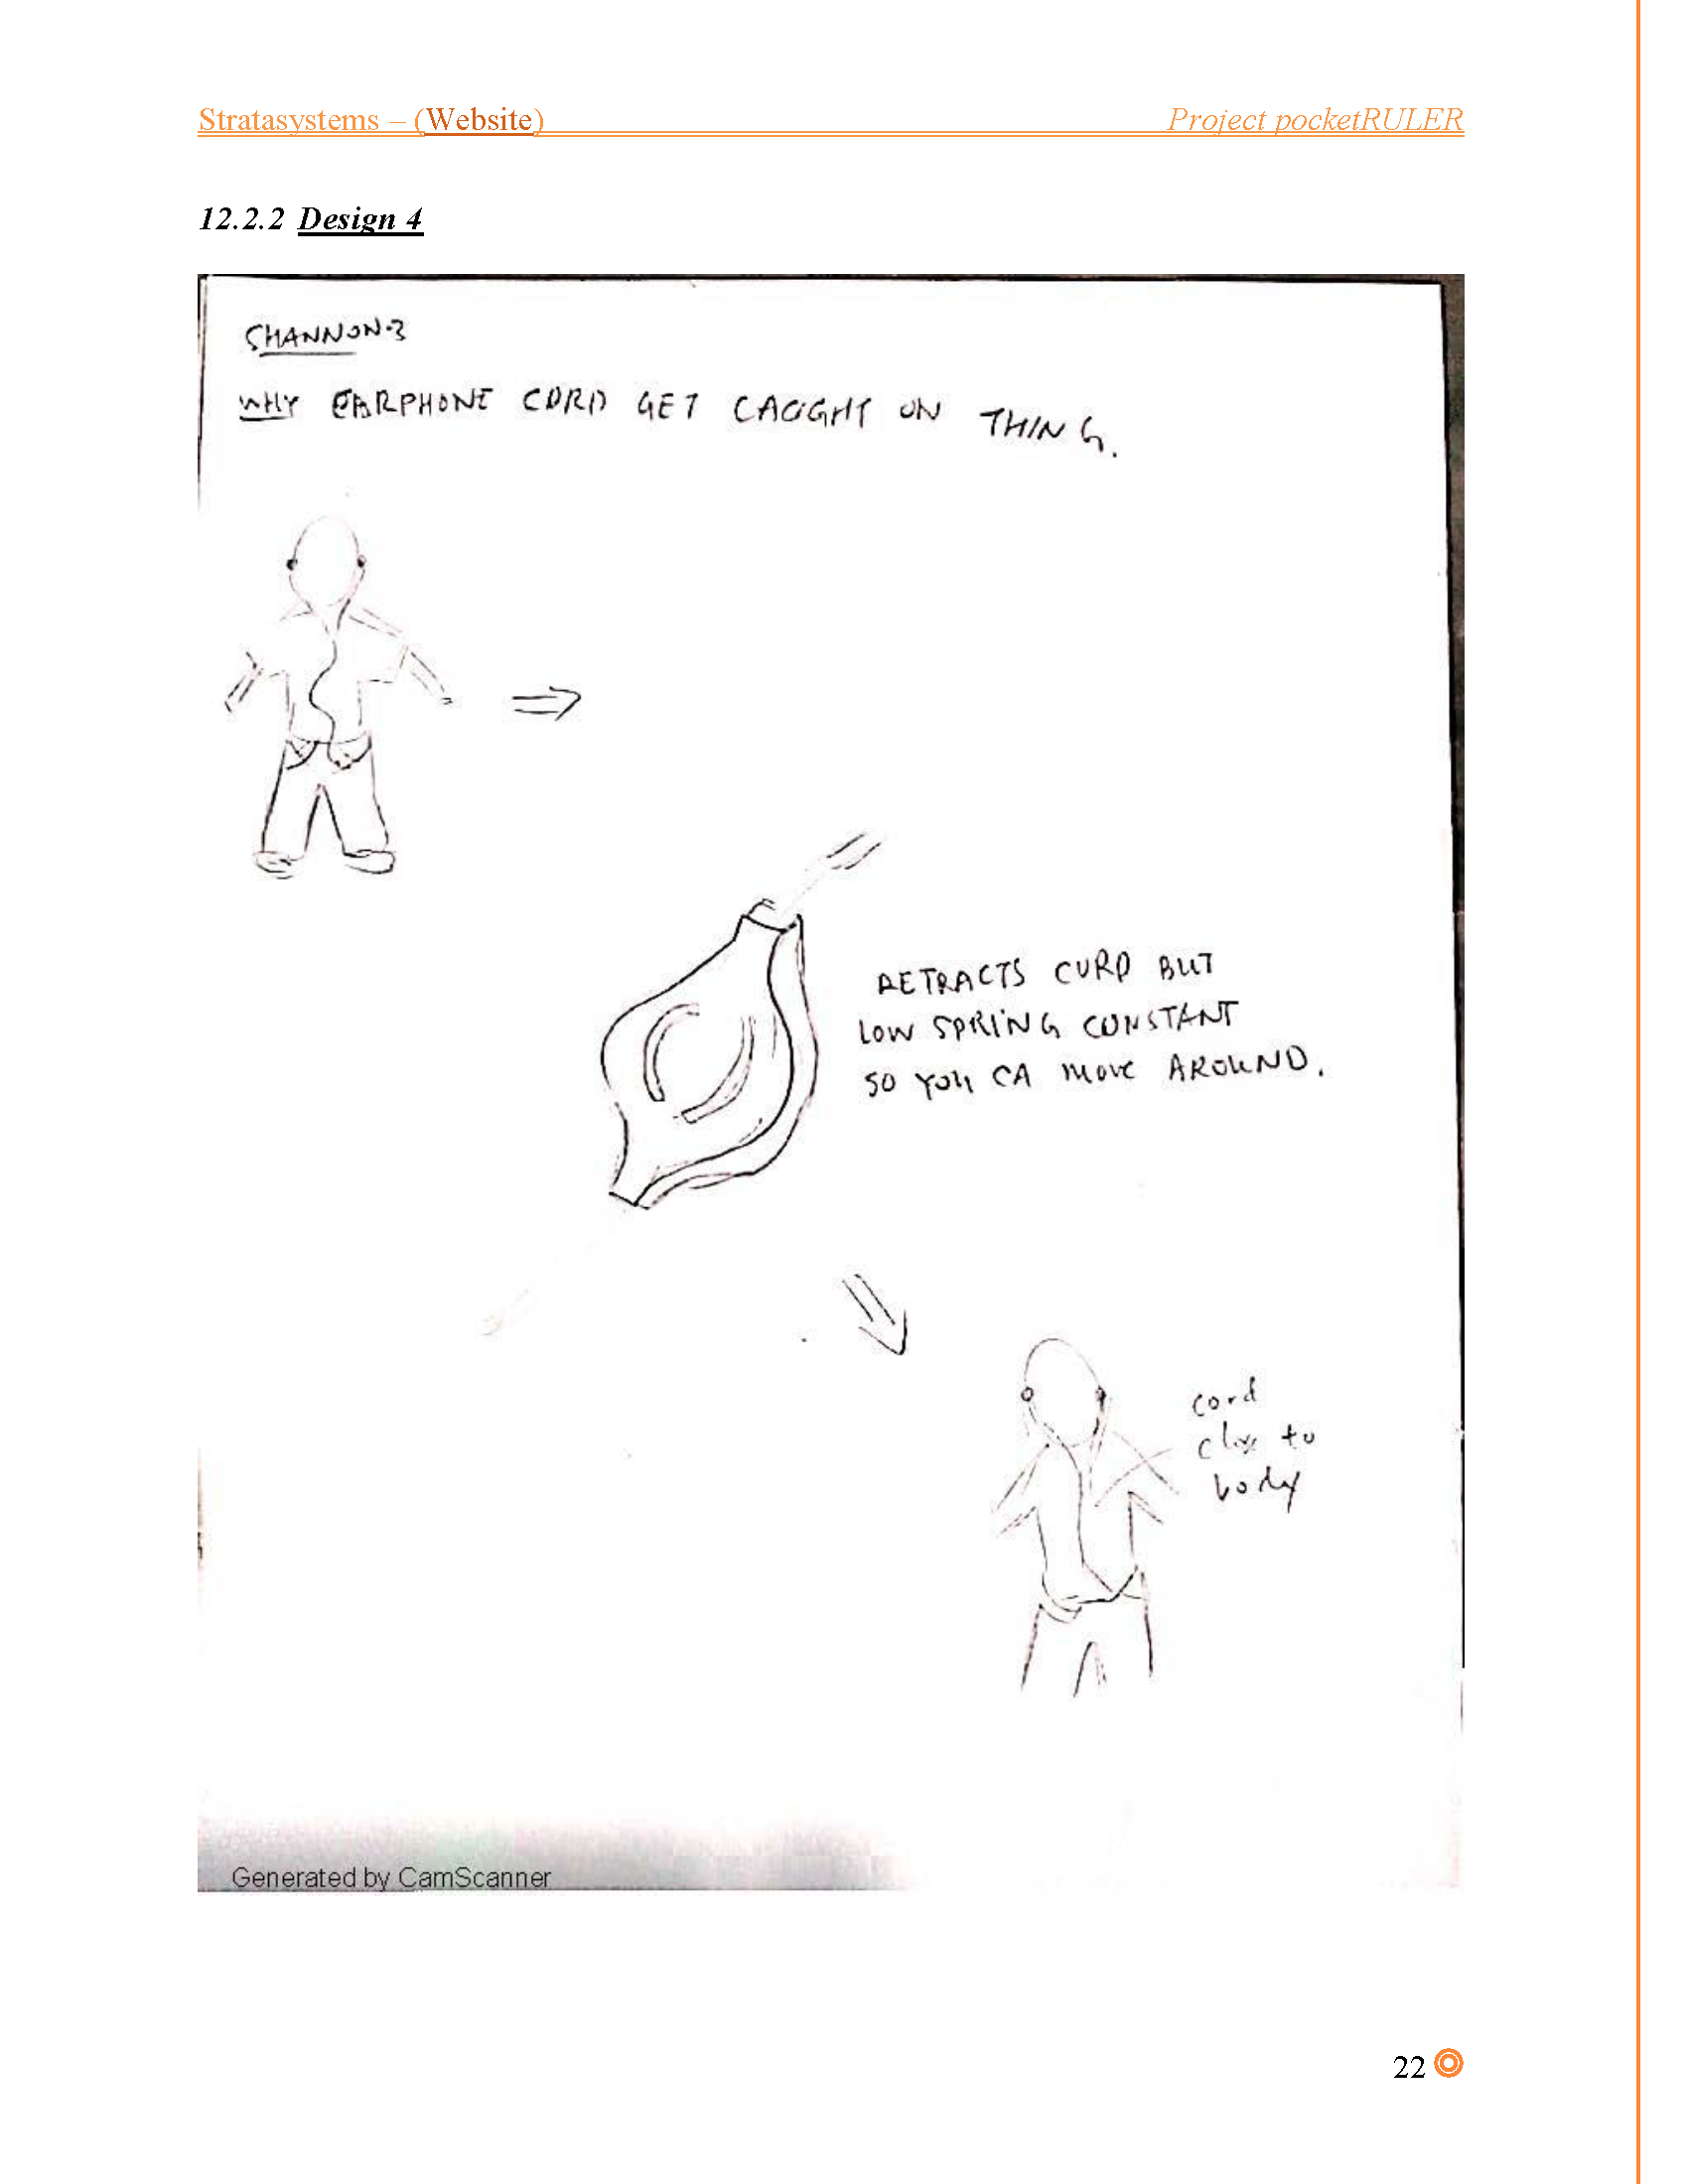 Stratasystems – (Website) Project pocketRULER
12.2.2 Design 4
SHANNON-3
WHY EARPHONE CORD GET CAUGHT ON THING.
RETRACTS CORD BUT
LOW SPRING CONSTANT
SO YOU CA MOVE AROUND.
cord
close to
body
Generated by CamScanner
22